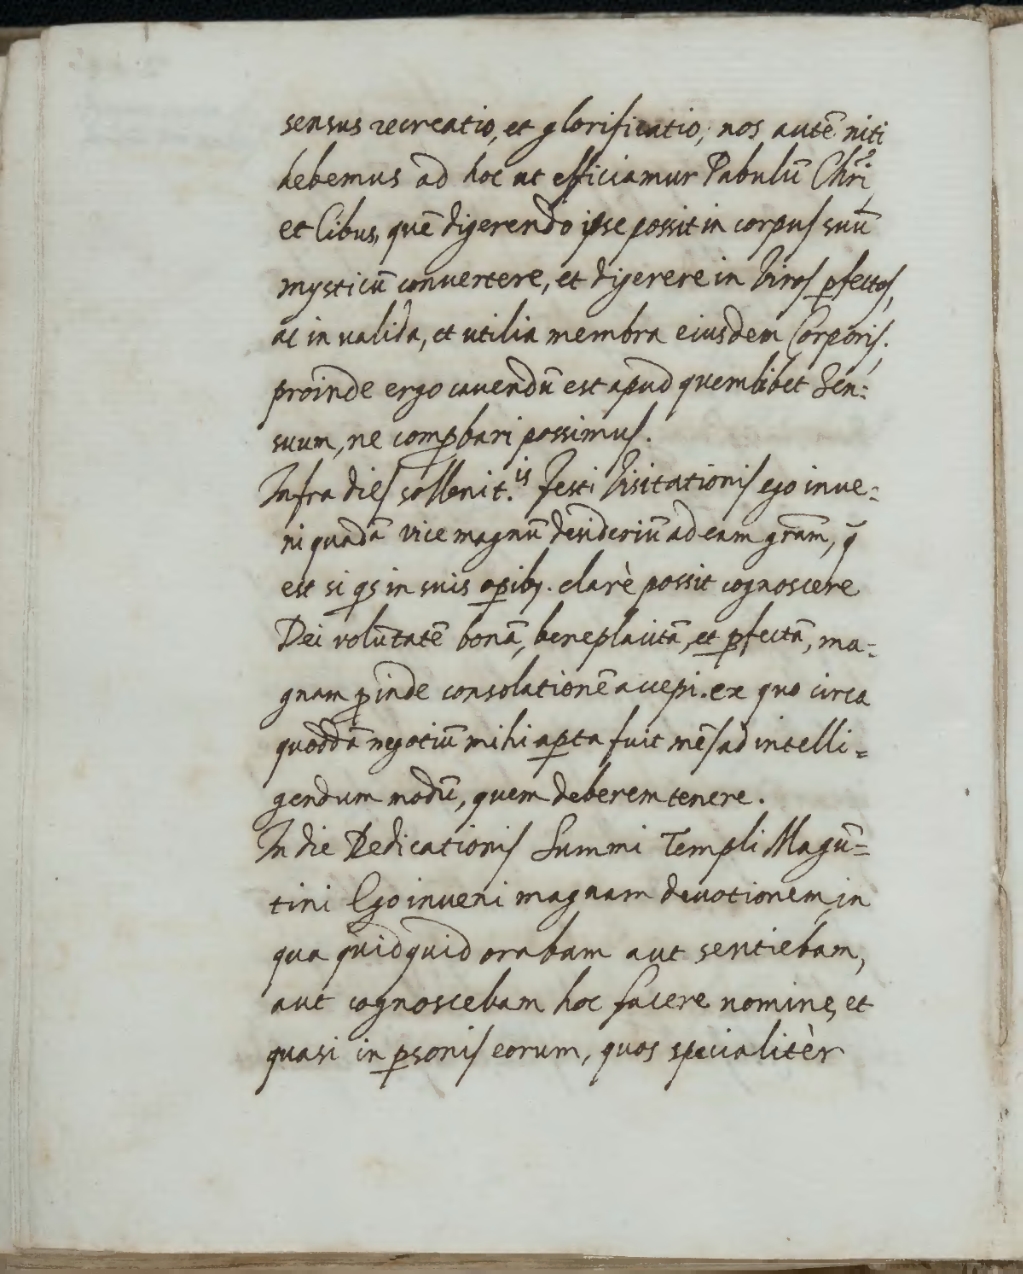 sensus recreatio, et glorificatio, nos autē niti
debemus ad hoc ut efficiamur Pabulū Chr̄i,
et Cibus, quē digerendo ipse possit in corpus suū
mysticū convertere, et digerere in Viros p̱fectos,
ac in valida, et utilia membra eiusdem Corporis;
proinde ergo cavendū est apud quemlibet Sen:
suum, ne comp̱bari possimus.
Infra dies sollenit.is Festi Visitationis ego inve:
ni quadā vice magnū desideriū ad eam grām, q̄
est si q̱s in suis op̱ibꝫ. clarè possit cognoscere
Dei volūtatē bonā, beneplacitā, et p̱fectā, ma:
gnam p̱inde consolationē accepi. ex quo circa
quoddā negotiū mihi ap̱ta fuit mēs ad intelli:
gendum modū, quem deberem tenere.
In die Dedicationis Summi Templi Magū=
tini Ego inveni magnam devotionem, in
qua quidquid orabam aut sentiebam,
aut cognoscebam hoc facere nomine, et
quasi in p̱sonis eorum, quos specialitèr